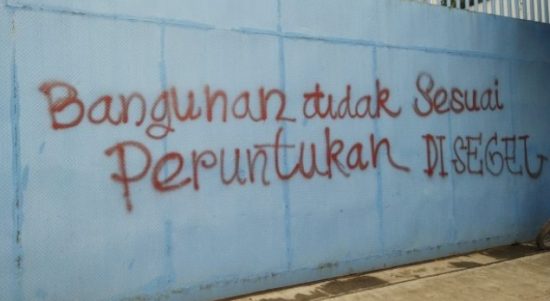 Bangunan tidak Sesuai
Peruntukan DI SEGEL